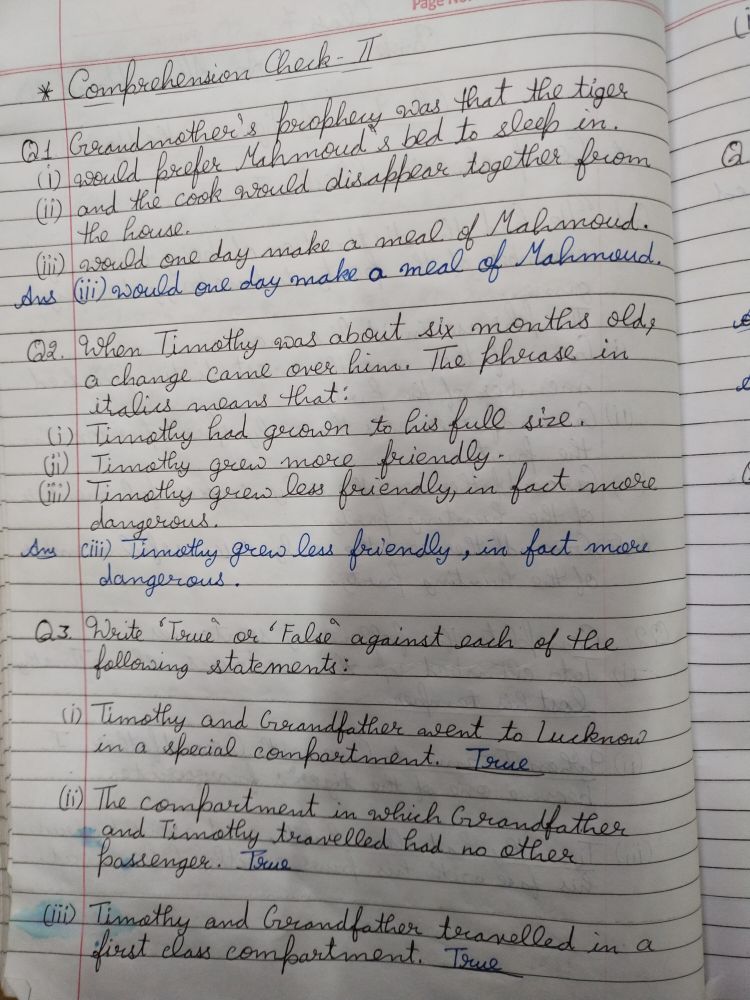 Page No.
* Comprehension Check - II
Q1 Grandmother's prophecy was that the tiger
(i) would prefer Mahmoud's bed to sleep in.
(ii) and the cook would disappear together from
the house.
(iii) would one day make a meal of Mahmoud.
Ans (iii) would one day make a meal of Mahmoud.
Q2. When Timothy was about six months old,
a change came over him. The phrase in
italics means that:
(i) Timothy had grown to his full size.
(ii) Timothy grew more friendly.
(iii) Timothy grew less friendly, in fact more
dangerous.
Ans (iii) Timothy grew less friendly, in fact more
dangerous.
Q3. Write 'True' or 'False' against each of the
following statements:
(i) Timothy and Grandfather went to Lucknow
in a special compartment. True
(ii) The compartment in which Grandfather
and Timothy travelled had no other
passenger. True
(iii) Timothy and Grandfather travelled in a
first class compartment. True